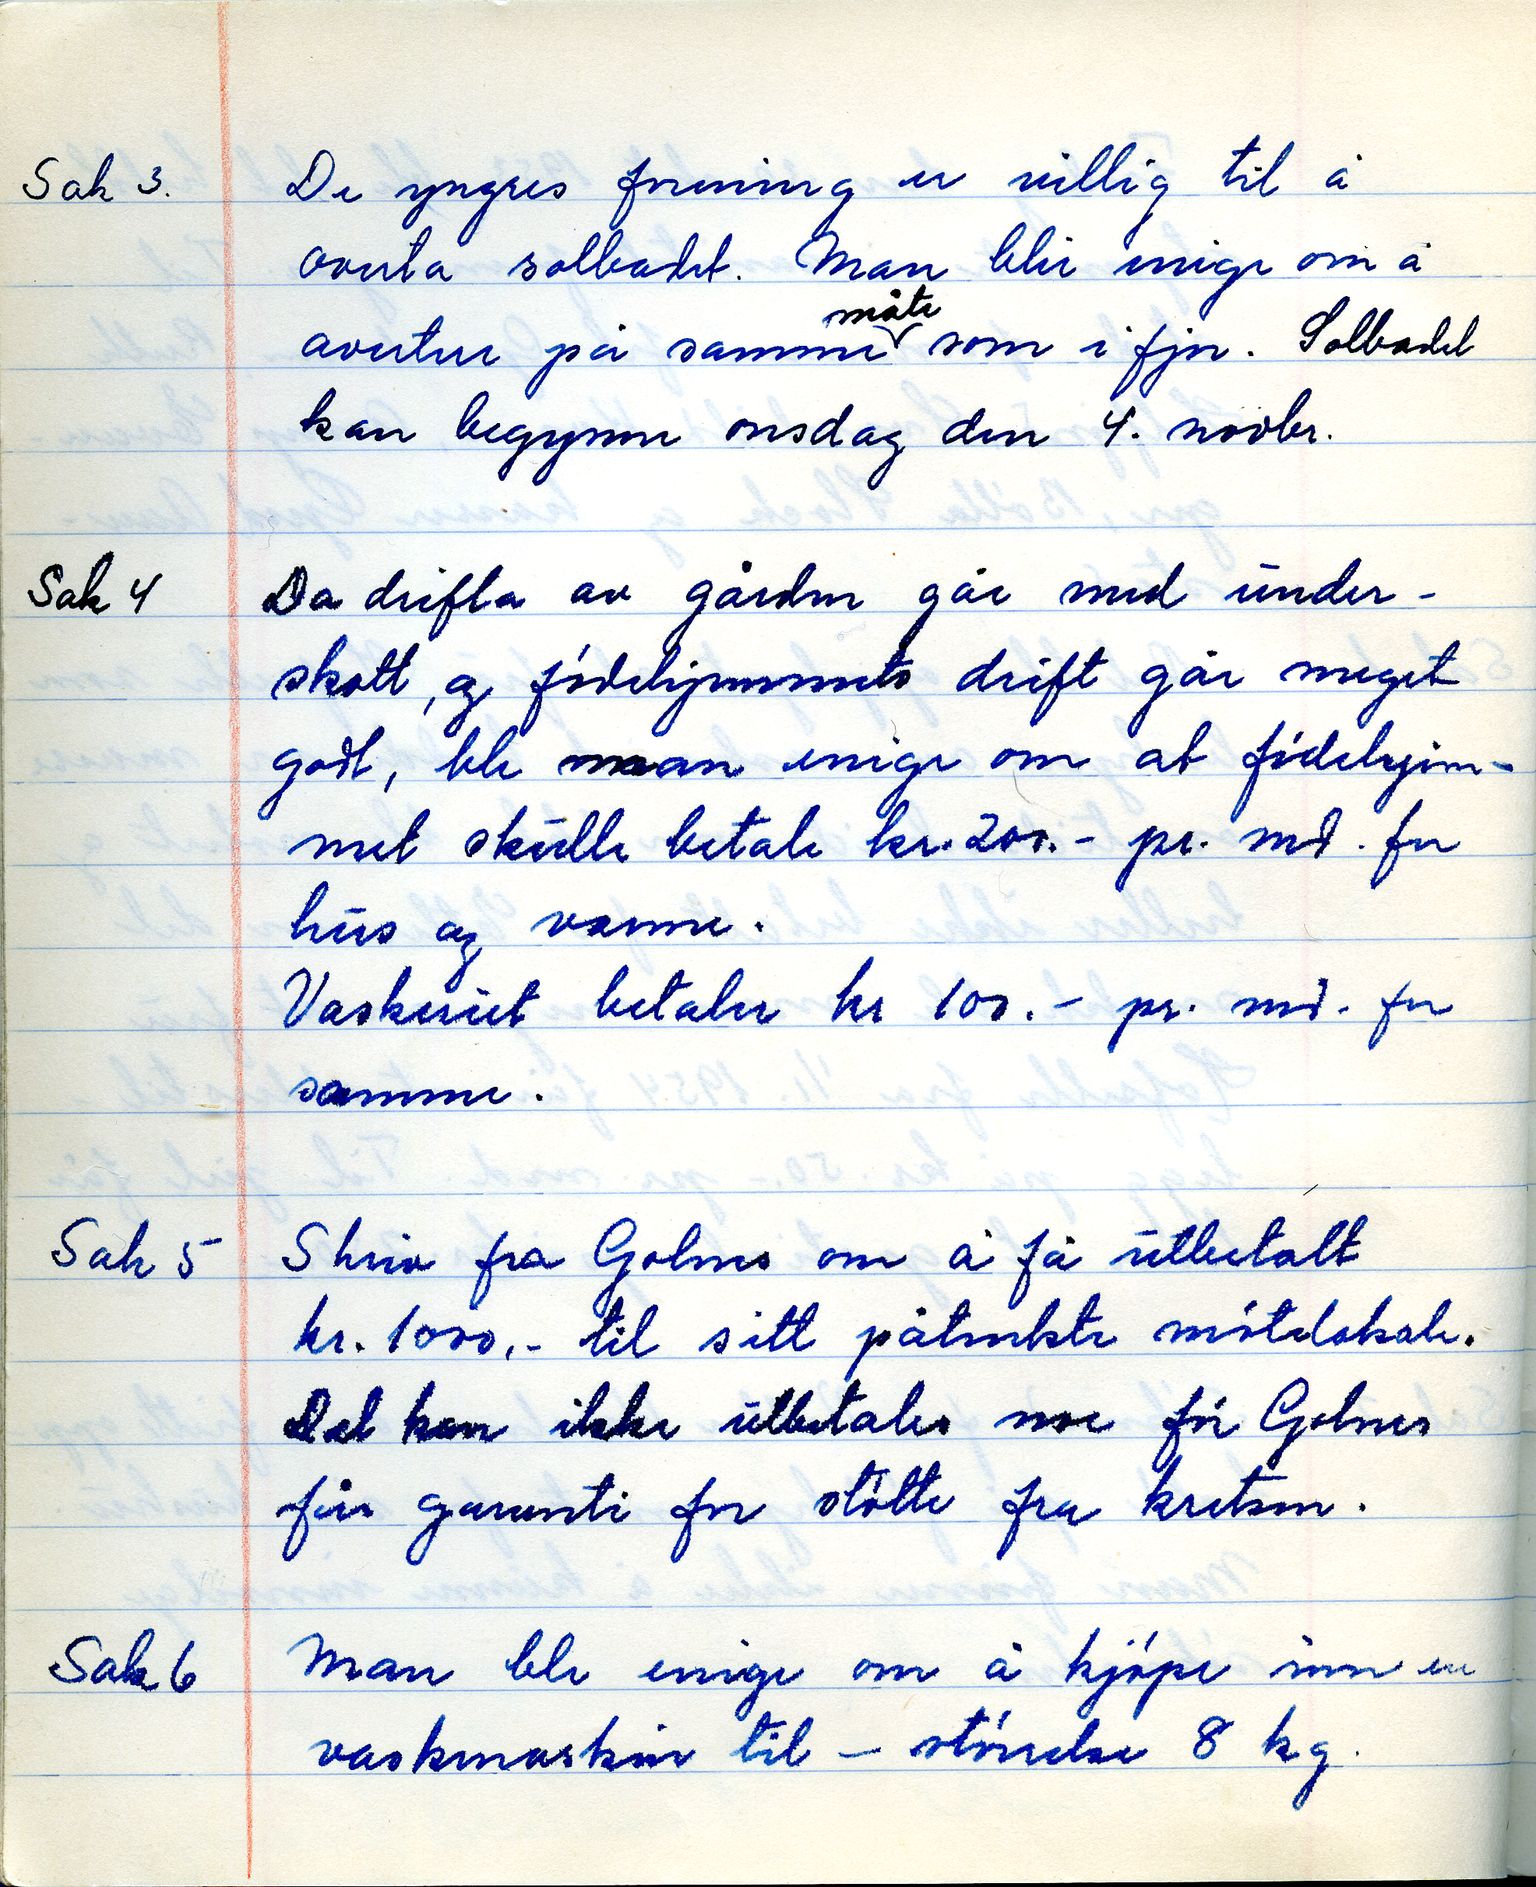 Sak 3. De yngres forening er villig til å
overta solbadet. Man blir enige om å
avertere på samme måte som i fjor. Solbadet
kan begynne onsdag den 4. novbr.
Sak 4 Da drifta av gården går med under-
skott, og fødehjemmets drift går meget
godt, ble man enige om at fødehjem-
met skulle betale kr. 200.- pr. md. for
hus og varme.
Vaskeriet betaler kr 100.- pr. md. for
samme.
Sak 5 Skriv fra Golnes om å få utbetalt
kr. 1000.- til sitt påtenkte møtelokale.
Det kan ikke utbetales noe før Golnes
får garanti for støtte fra kretsen.
Sak 6 Man ble enige om å kjøpe inn en
vaskmaskin til – størrelse 8 kg.